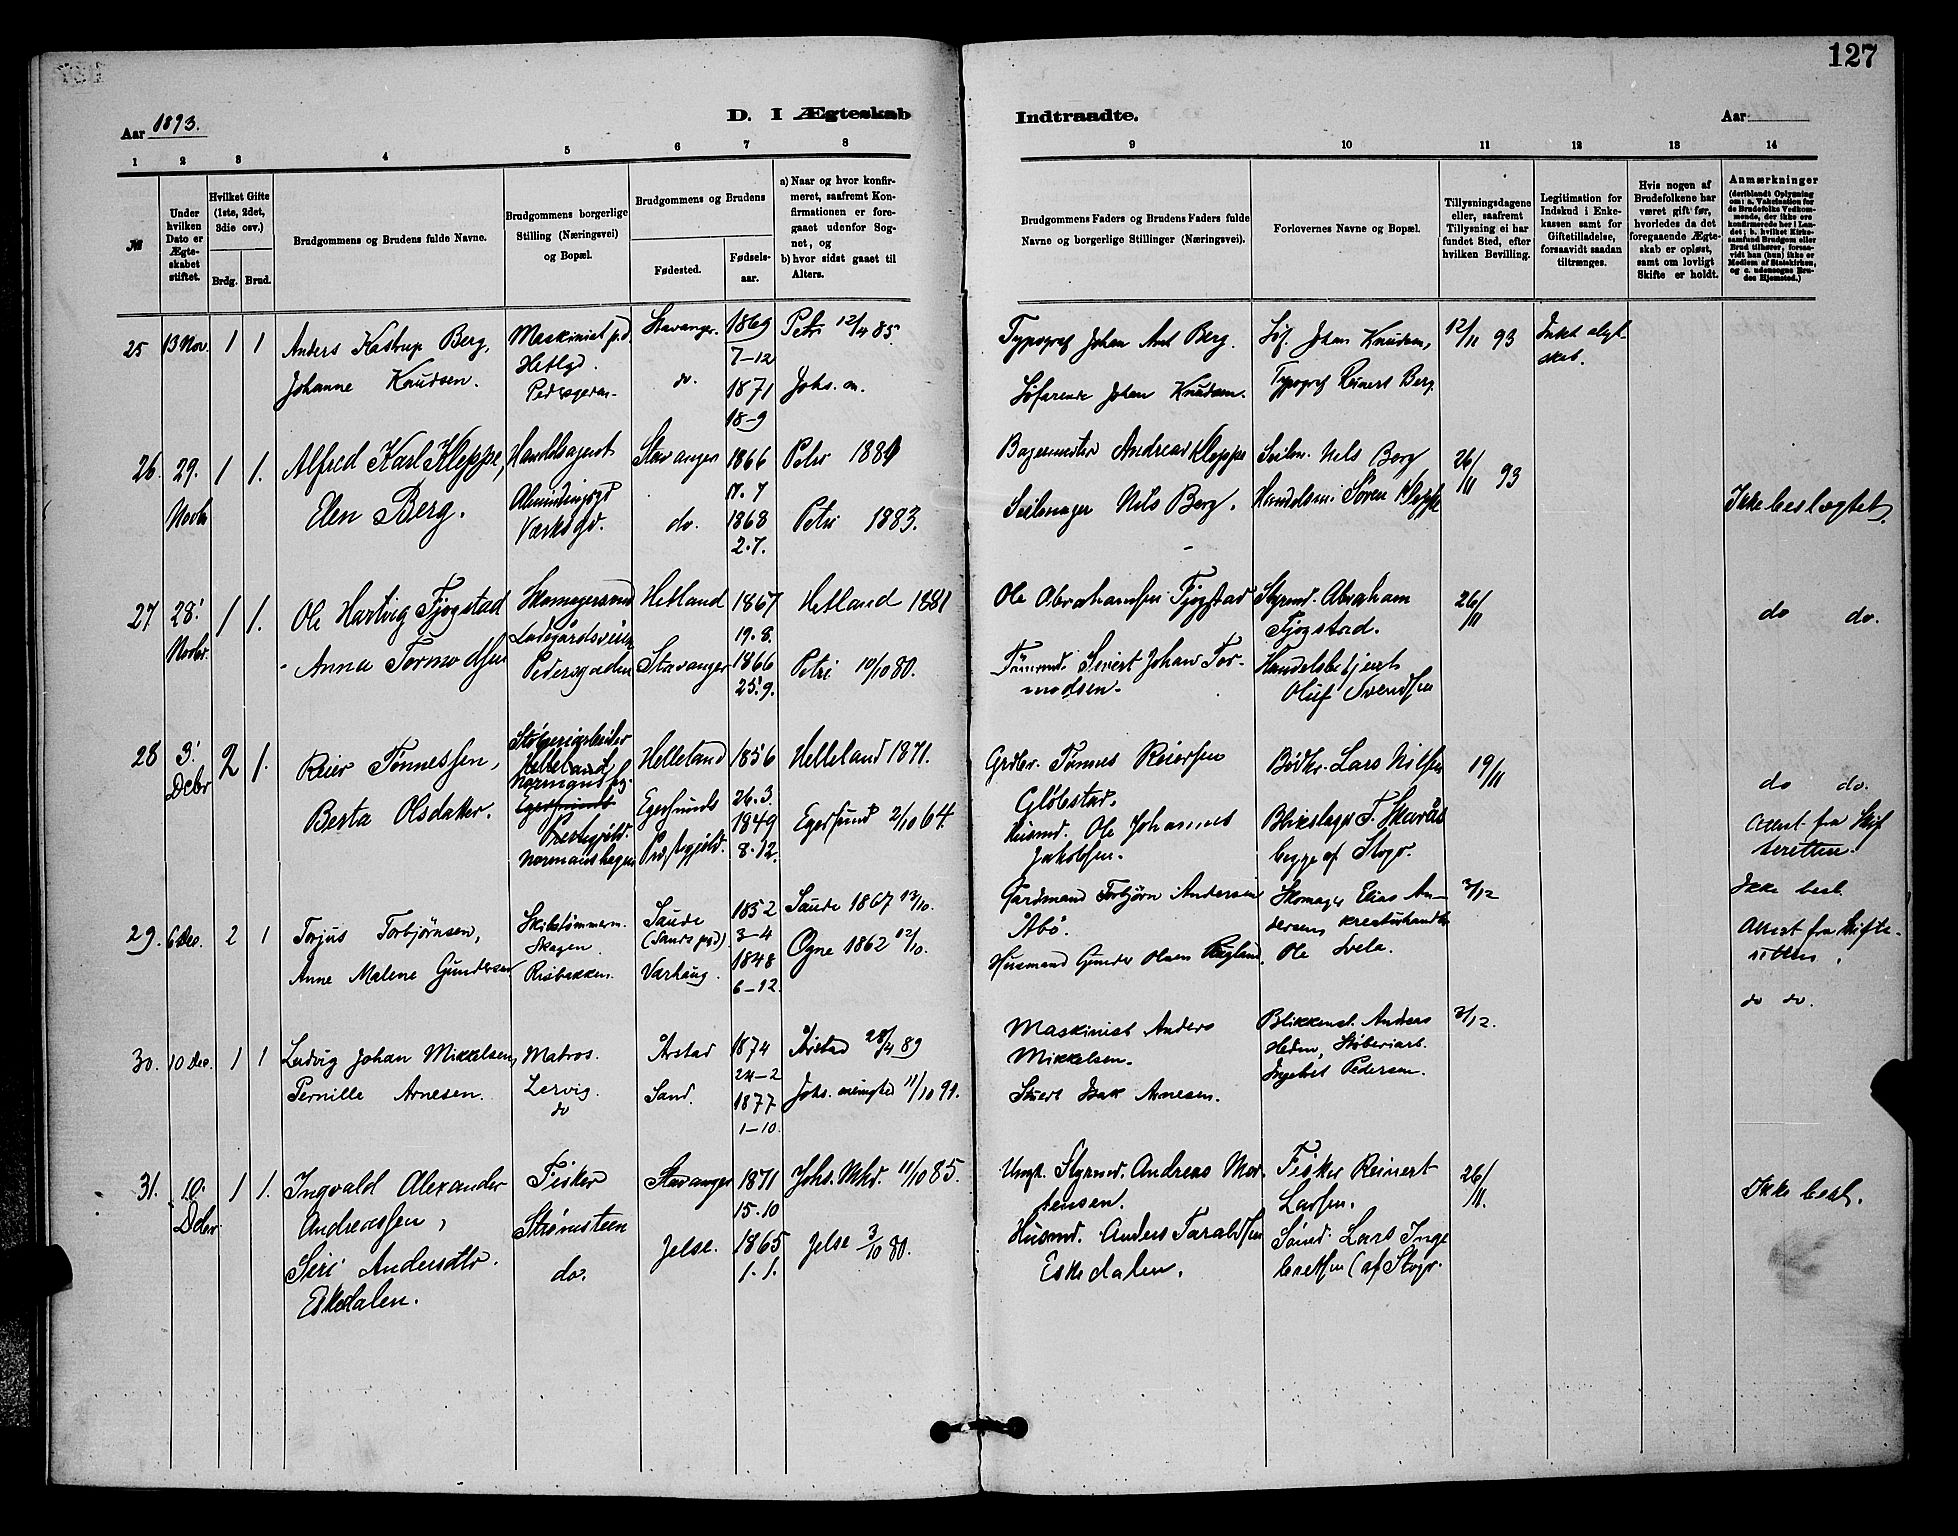 127
Aar 1893.
D. I Ægteskab
Indtraadte.
Aar
1 2 3 4 5 6 7 8
9 10 11 12 13 14
№
Under hvilken Dato er Ægteskabet stiftet.
Hvilket Gifte (1ste, 2det, 3die osv.)
Brdg. Brud.
Brudgommens og Brudens fulde Navne.
Brudgommens borgerlige Stilling (Næringsvei) og Bopæl.
Brudgommens og Brudens
Fødested.
Fødselsaar.
a) Naar og hvor konfirmeret, saafremt Konfirmationen er foregaaet udenfor Sognet, og
b) hvor sidst gaaet til Alters.
Brudgommens Faders og Brudens Faders fulde Navne og borgerlige Stillinger (Næringsvei).
Forlovernes Navne og Bopæl.
Tillysningsdagene eller, saafremt Tillysning ei har fundet Sted, efter hvilken Bevilling.
Legitimation for Indskud i Enkekassen samt for Giftetilladelse, forsaavidt saadan tiltrænges.
Hvis nogen af Brudefolkene har været gift før, hvorledes da det foregaaende Ægteskab er opløst, samt om lovligt Skifte er holdt.
Anmærkninger
(deriblandt Oplysning om: a. Vakcination for de Brudefolks Vedkommende, der ikke ere konfirmerede her i Landet; b. hvilket Kirkesamfund Brudgom eller Brud tilhører, forsaavidt han (hun) ikke er Medlem af Statskirken, og c. udensogns Brudes Hjemsted.)
25 13 Nov. 1 1
Anders Kastrup Berg,
Johanne Knudsen.
Maskinist
Hetlgd.
Stavanger.
do.
1869
7-12
1871
18-9
Petri 12/4 85.
Johs. m.
Typograf Johan Ant Berg.
Søfarende Johan Knudsen.
Søf. Johan Knudsen,
Typograf Reinert Berg.
12/11 93
26. 29. Novbr 1 1.
Alfred Karl Kleppe,
Elen Berg.
Handelsagent
Værksgd.
Stavanger
do.
1866
17. 7
1868
2. 7.
Petri 1881
Petri 1883.
Bagermester Andreas Kleppe
Seilmager Nils Berg.
Seilm. Nils Berg
Handelsm. Søren Kleppe
26/11 93
Ikke beslægtet.
27 28. Novbr. 1 1.
Ole Hartvig Fjogstad
Anna Tormodsen
Skomagersvend
Ladegårdsveien
Pedersgaden
Hetland
Stavanger
1867
19. 8.
1866
25. 9.
Hetland 1881
Petri 10/10 80.
Ole Abrahamsen Fjogstad
Tømrmd. Sivert Johan Tormodsen.
Styrmd. Abraham
Fjogstad.
Handelsbetjent
Oluf Svendsen
26/11
do do.
28 3. Debr 2 1.
Reier Tønnessen,
Berta Olsdatter.
Støberiarbeider
Helleland
Egersunds
Præstegjeld.
Normanshagen
Helleland
Egersunds
Præstegjeld.
1856
26. 3.
1849
8. 12.
Helleland 1871.
Egersund 2/10 64.
Grdbr. Tønnes Reiersen
Gløbstad.
Husmd. Ole Johannes
Jakobsen.
Bødkr. Lars Nilsen
Blikslager T. Skaraas
begge af Stvgr.
19/11
do do.
Attest fra Skifteretten.
29. 6 Dec. 2 1
Torjus Torbjørnsen,
Anne Malene Gundersen
Skibstømmerm.
Skagen
Risbakken.
Saude
(Sands pgd)
Varhaug.
1852
3-4
1848
6-12.
Saude 1867 13/10.
Ogne 1862 12/10.
Gardmand Torbjørn Andersen
Åbø.
Husmand Gunder Olsen Rugland.
Skomager Elias Andersen, kreaturhandler
Ole Svela.
3/12
Ikke besl.
Attest fra Skifteretten.
30. 10 Dec. 1 1
Ludvig Johan Mikkelsen,
Pernille Arnesen.
Matros.
Lervig.
do
Årstad
Sand.
1874
24-2
1877
1-10.
Årstad 28/4 89
Johs. menighed 11/10 91.
Maskinist Anders
Mikkelsen.
Stuert Isak Arnesen.
Blikkensl. Anders
Heden, Støberiarb.
Ingebret Pedersen.
3/12.
do do.
31. 10. Debr 1 1.
Ingvald Alexander
Andreassen,
Siri Andersdtr.
Eskedalen.
Fisker
Strømsteen
do.
Stavanger
Jelse.
1871
15. 10
1865
1. 1.
Johs. Mhd. 11/10 85.
Jelse 3/10 80.
Ungk. Styrmd. Andreas Mortensen.
Husmd. Anders Taraldsen
Eskedalen.
Fisker Reinert
Larsen.
Sømd. Lars Ingebretsen (af Stvgr.
26/11.
Ikke besl.